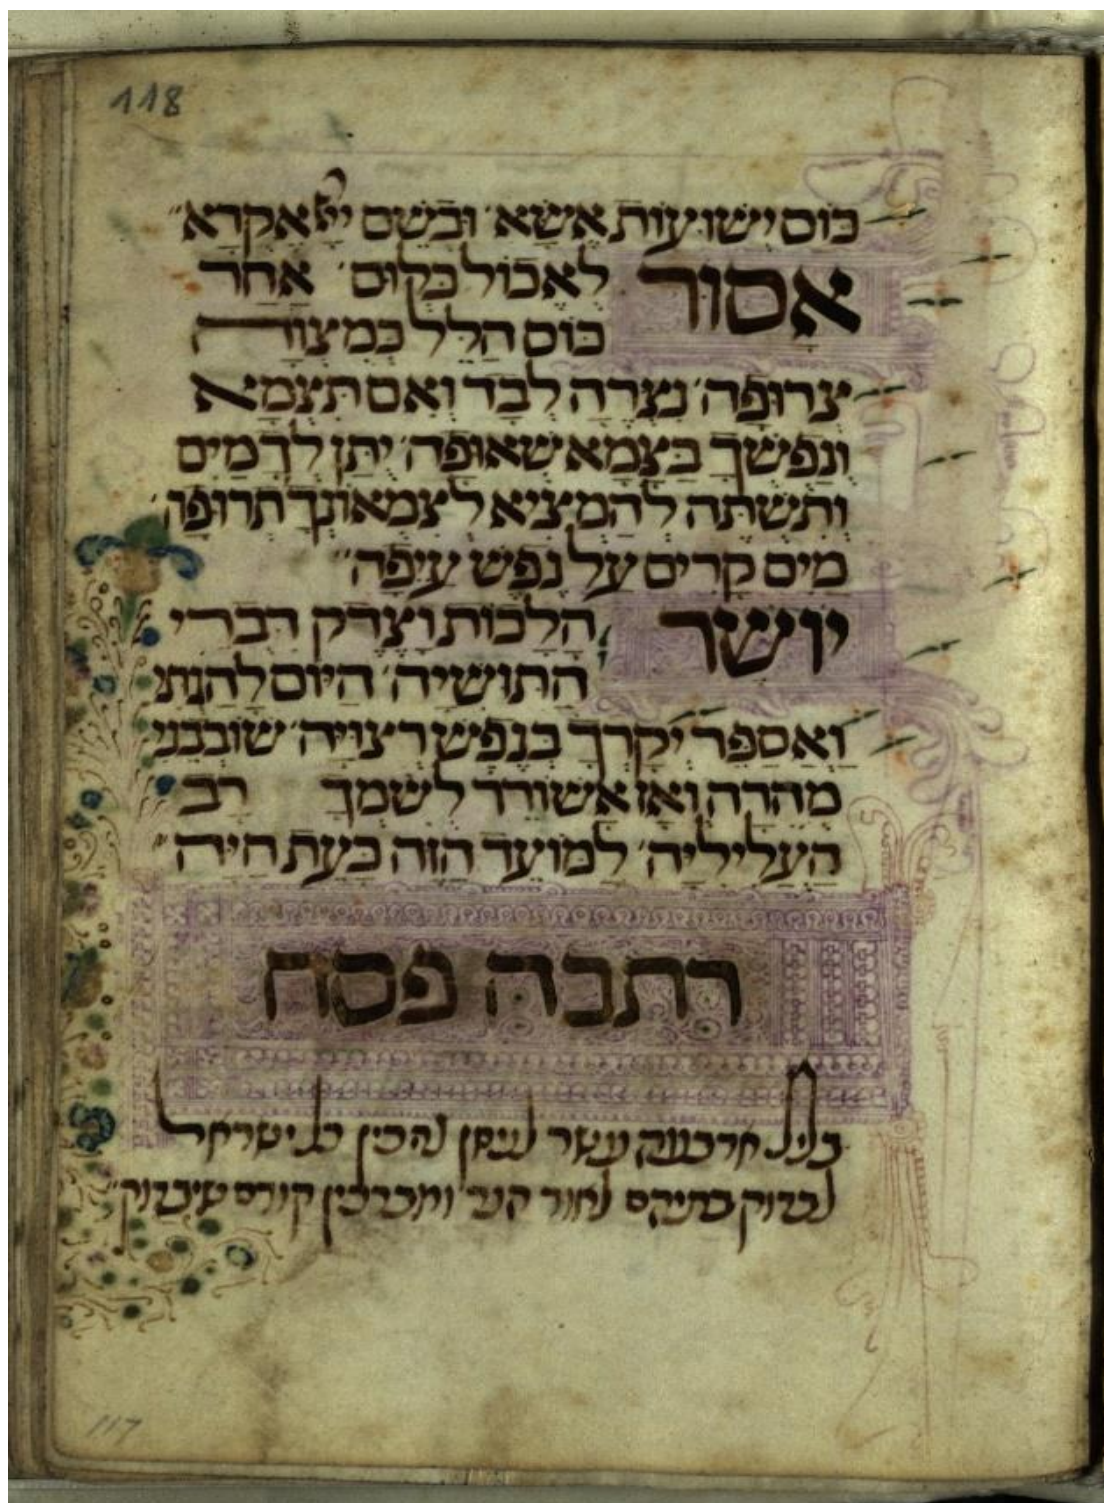 118
כוס ישועות אשא׳ ובשם ייָ אקרא״
אסור לאכול כלום׳ אחר
כוס הלל כמצוה
צרופה׳ נצרה לבד ואם תצמא
ונפשך בצמא שאופה׳ יתן לך מים
ותשתה להמציא לצמאונך תרופה׳
מים קרים על נפש עיפה״
יושר הלכות וצדק דברי
התושיה׳ היום להנתי
ואספר יקרך בנפש רצויה׳ שובב בני
מהרה ואז אשורר לשמך רב
העליליה׳ למועד הזה כעת חיה״
רתבה פסח
בליל ארבעה עשר לניסן צריכין כל ישראל
לבדוק בתיהם לאור הנר׳ ומברכין קודם שיבדוק׳
117